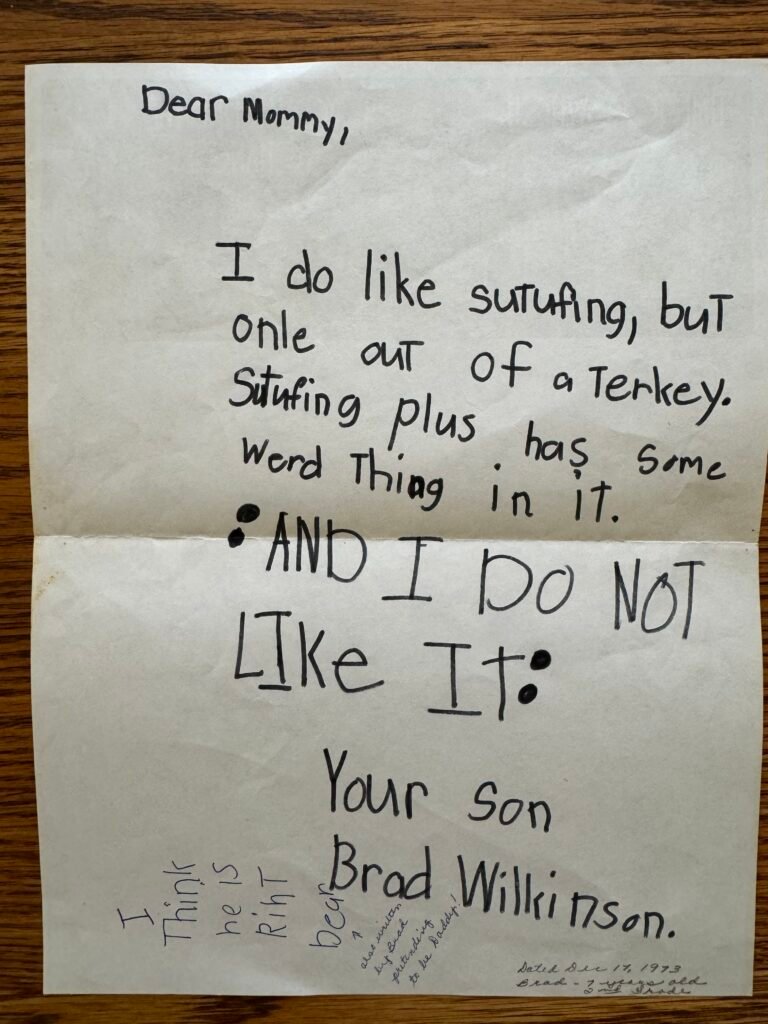 Dear Mommy,
I do like sutufing, but
onle out of a Terkey.
Sutufing plus has some
Werd Thing in it.
:AND I DO NOT
LIKe It:
Your son
Brad Wilkinson.
I
Think
he is
RihT
Dear
↑
also written
by Brad
pretending
to be Daddy!
Dated Dec 17, 1973
Brad - 7 years old
2nd Grade